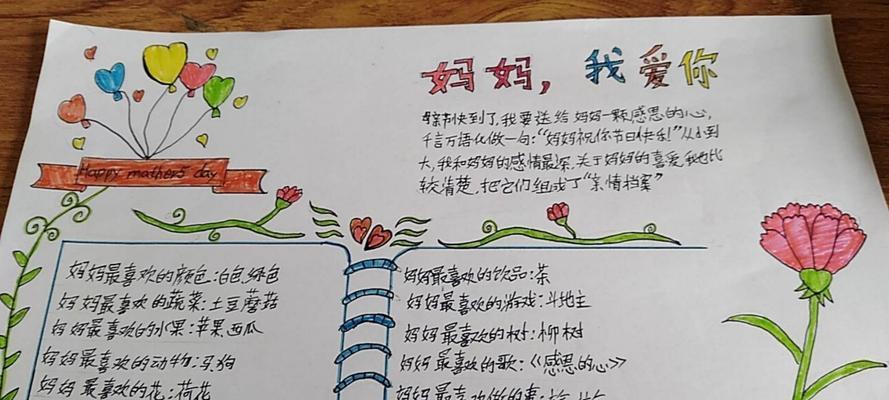 妈妈，我爱你
Happy mathers day
母亲节快到了,我要送给妈妈一颗感恩的心,
千言万语化做一句:"妈妈祝你节日快乐!"从小到
大,我和妈妈的感情最深,关于妈妈的喜爱,我也比
较清楚,把它们组成了"亲情档案"
妈妈最喜欢的颜色:白色绿色
妈妈最喜欢的蔬菜:土豆蘑菇
妈妈最喜欢的水果:苹果西瓜
妈妈最喜欢的动物:马狗
妈妈最喜欢的花:荷花
妈妈最喜欢的饮品:茶
妈妈最喜欢的游戏:斗地主
妈妈最喜欢的树:柳树
妈妈最喜欢的歌:《感恩的心》
妈妈最喜欢做的事: